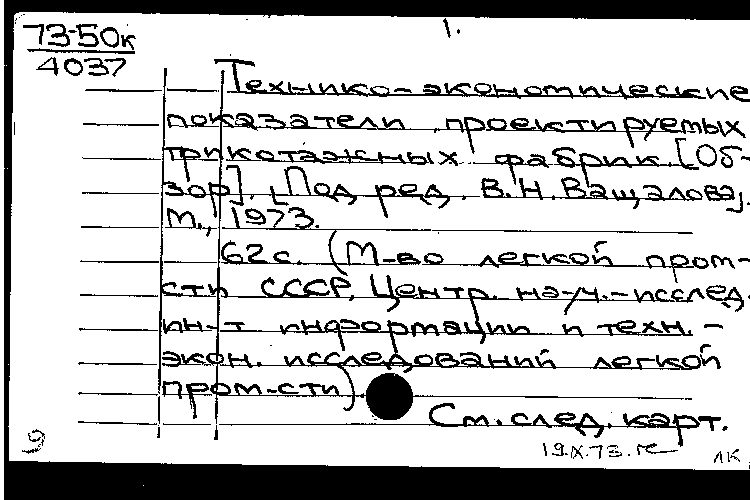 1.
73-50к
4037
Технико-экономические
показатели проектируемых
трикотажных фабрик. [Об-
зор]. [Под ред. В.Н. Ващалова].
М., 1973.
62с. (М-во легкой пром-
сти СССР, Центр. науч.-исслед.
ин-т информации и техн.-
экон. исследований легкой
пром-сти).
См. след. карт.
9
19.IX.73.
ЛК